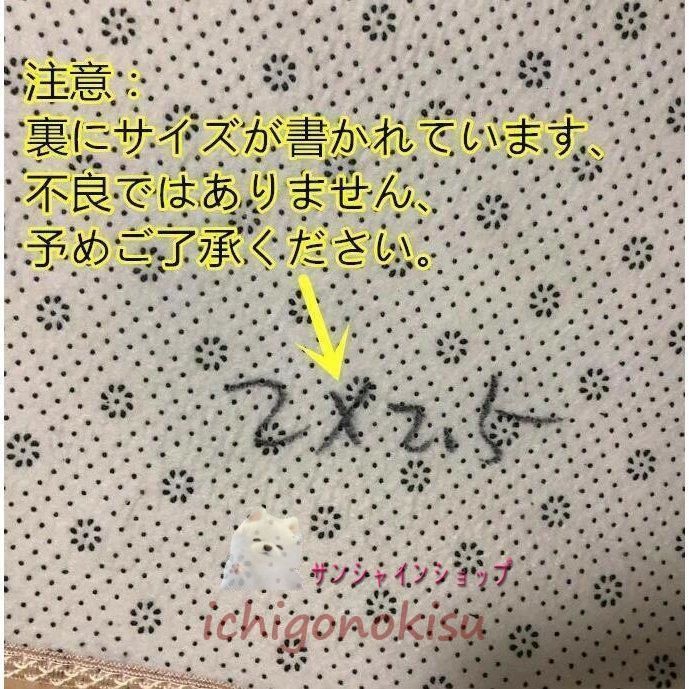 注意：
裏にサイズが書かれています、
不良ではありません、
予めご了承ください。
2×2.5
サンシャインショップ
ichigonokisu